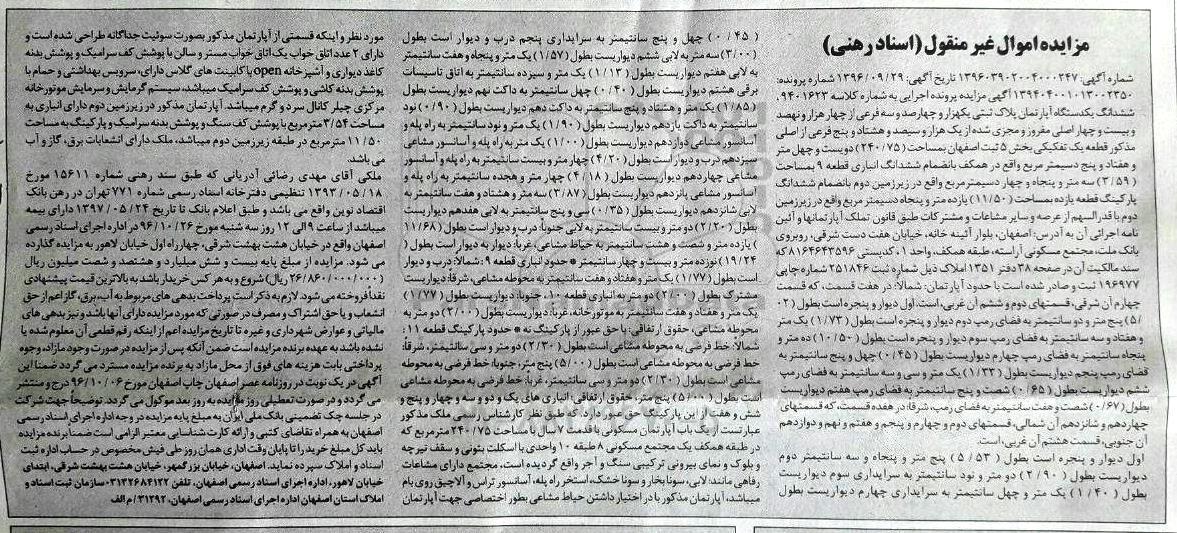 مزایده اموال غیر منقول (اسناد رهنی)
شماره آگهی: ۱۳۹۶۰۳۹۰۲۰۰۴۰۰۰۲۴۷ تاریخ آگهی: ۱۳۹۶/۰۹/۲۹ شماره پرونده:
۱۳۹۴۰۴۰۰۱۰۱۳۰۰۲۳۵۰ آگهی مزایده پرونده اجرایی به شماره کلاسه ۹۴۰۱۶۲۳،
ششدانگ یکدستگاه آپارتمان پلاک ثبتی یکهزار و چهارصد و سه فرعی از چهار هزار و نهصد
و بیست و چهار اصلی مفروز و مجزی شده از یک هزار و سیصد و هشتاد و پنج فرعی از اصلی
مذکور قطعه یک تفکیکی بخش ۵ ثبت اصفهان بمساحت (۲۴۰/۷۵) دویست و چهل متر
و هفتاد و پنج دسیمتر مربع واقع در همکف بانضمام ششدانگ انباری قطعه ۹ بمساحت
(۳/۵۹) سه متر و پنجاه و چهار دسیمتر مربع واقع در زیرزمین دوم بانضمام ششدانگ
پارکینگ قطعه یازده بمساحت (۱۱/۵۰) یازده متر و پنجاه دسیمتر مربع واقع در زیرزمین
دوم با قدرالسهم از عرصه و سایر مشاعات و مشترکات طبق قانون تملک آپارتمانها و آئین
نامه اجرائی آن به آدرس: اصفهان، بلوار آئینه خانه، خیابان هفت دست شرقی، روبروی
بانک ملت، مجتمع مسکونی آراسته، طبقه همکف، واحد ۱، کدپستی ۸۱۶۴۶۴۳۵۹۶ که
سند مالکیت آن در صفحه ۳۸ دفتر ۱۳۵۱ املاک ذیل شماره ثبت ۲۵۱۸۴۶ با شماره چاپی
۱۹۶۹۷۷ ثبت و صادر شده است با حدود آپارتمان: شمالاً: در هفت قسمت، که قسمت
چهارم آن شرقی، قسمتهای دوم و ششم آن غربی، است. اول دیوار و پنجره است بطول (۰۲
/۵) پنج متر و دو سانتیمتر به فضای رمپ دوم دیوار و پنجره است بطول (۱/۷۳) یک متر
و هفتاد و سه سانتیمتر به فضای رمپ سوم دیوار و پنجره است بطول (۱۰/۵۰) ده متر و
پنجاه سانتیمتر به فضای رمپ چهارم دیواریست بطول (۰/۴۵) چهل و پنج سانتیمتر به
فضای رمپ پنجم دیواریست بطول (۱/۳۳) یک متر و سی و سه سانتیمتر به فضای رمپ
ششم دیواریست بطول (۰/۶۵) شصت و پنج سانتیمتر به فضای رمپ هفتم دیواریست
بطول (۰/۶۷) شصت و هفت سانتیمتر به فضای رمپ، شرقاً: در هفده قسمت، که قسمتهای
چهاردهم و شانزدهم آن شمالی، قسمتهای دوم و چهارم و پنجم و هفتم و نهم و دوازدهم
آن جنوبی، قسمت هشتم آن غربی، است.
اول دیوار و پنجره است بطول (۵/۵۳) پنج متر و پنجاه و سه سانتیمتر دوم
دیواریست بطول (۲/۹۰) دو متر و نود سانتیمتر به سرایداری سوم دیواریست
بطول (۱/۴۰) یک متر و چهل سانتیمتر به سرایداری چهارم دیواریست بطول
(۰/۴۵) چهل و پنج سانتیمتر به سرایداری پنجم درب و دیوار است بطول
(۳/۰۰) سه متر به لابی ششم دیواریست بطول (۱/۵۷) یک متر و پنجاه و هفت سانتیمتر
به لابی هفتم دیواریست بطول (۱/۱۳) یک متر و سیزده سانتیمتر به اتاق تاسیسات
برقی هشتم دیواریست بطول (۰/۴۰) چهل سانتیمتر به داکت نهم دیواریست بطول
(۱/۸۵) یک متر و هشتاد و پنج سانتیمتر به داکت دهم دیواریست بطول (۰/۹۰) نود
سانتیمتر به داکت یازدهم دیواریست بطول (۱/۹۰) یک متر و نود سانتیمتر به راه پله و
آسانسور مشاعی دوازدهم دیواریست بطول (۱/۰۰) یک متر به راه پله و آسانسور مشاعی
سیزدهم درب و دیوار است بطول (۴/۲۰) چهار متر و بیست سانتیمتر به راه پله و آسانسور
مشاعی چهاردهم دیواریست بطول (۴/۱۸) چهار متر و هجده سانتیمتر به راه پله و
آسانسور مشاعی پانزدهم دیواریست بطول (۳/۸۷) سه متر و هشتاد و هفت سانتیمتر به
لابی شانزدهم دیواریست بطول (۰/۳۵) سی و پنج سانتیمتر به لابی هفدهم دیواریست
بطول (۲/۲۰) دو متر و بیست سانتیمتر به لابی جنوباً: درب و دیوار است بطول (۱۱/۶۸
) یازده متر و شصت و هشت سانتیمتر به حیاط مشاعی، غرباً: دیوار به دیوار است بطول (
۱۹/۲۴) نوزده متر و بیست و چهار سانتیمتر * حدود انباری قطعه ۹: شمالاً: درب و دیوار
است بطول (۱/۷۷) یک متر و هفتاد و هفت سانتیمتر به محوطه مشاعی، شرقاً: دیواریست
مشترک بطول (۲/۰۰) دو متر به انباری قطعه ۱۰، جنوباً: دیواریست بطول (۱/۷۷)
یک متر و هفتاد و هفت سانتیمتر به موتورخانه، غرباً: دیواریست بطول (۲/۰۰) دو متر به
محوطه مشاعی، حقوق ارتفاقی: با حق عبور از پارکینگ نه * حدود پارکینگ قطعه ۱۱:
شمالاً: خط فرضی به محوطه مشاعی است بطول (۲/۳۰) دو متر و سی سانتیمتر، شرقاً:
خط فرضی به محوطه مشاعی است بطول (۵/۰۰) پنج متر، جنوباً: خط فرضی به محوطه
مشاعی است بطول (۲/۳۰) دو متر و سی سانتیمتر، غرباً: خط فرضی به محوطه مشاعی
است بطول (۵/۰۰) پنج متر، حقوق ارتفاقی: انباری های یک و دو و سه و چهار و پنج و
شش و هفت از این پارکینگ حق عبور دارد. که طبق نظر کارشناس رسمی ملک مذکور
عبارتست از یک باب آپارتمان مسکونی با قدمت ۷ سال با مساحت ۲۴۰/۷۵ متر مربع که
در طبقه همکف یک مجتمع مسکونی ۸ طبقه ۱۰ واحدی با اسکلت بتونی و سقف تیرچه
و بلوک و نمای بیرونی ترکیبی سنگ و آجر واقع گردیده است. مجتمع دارای مشاعات
رفاهی مانند: لابی، سونا بخار و سونا خشک، استخر، راه پله، آسانسور، تراس و آلاچیق روی بام
میباشد، آپارتمان مذکور با در اختیار داشتن حیاط مشاعی بطور اختصاصی جهت آپارتمان
مورد نظر و اینکه قسمتی از آپارتمان مذکور بصورت سوئیت جداگانه طراحی شده است و
دارای ۲ عدد اتاق خواب یک اتاق خواب مستر و سالن با پوشش کف سرامیک و پوشش بدنه
کاغذ دیواری و آشپزخانه open با کابینت های گلاس دارای، سرویس بهداشتی و حمام با
پوشش بدنه کاشی و پوشش کف سرامیک میباشد، سیستم گرمایش و سرمایش موتورخانه
مرکزی چیلر کانال سرد و گرم میباشد. آپارتمان مذکور در زیرزمین دوم دارای انباری به
مساحت ۳/۵۴ متر مربع با پوشش کف سنگ و پوشش بدنه سرامیک و پارکینگ به مساحت
۱۱/۵۰ متر مربع در طبقه زیرزمین دوم میباشد، ملک دارای انشعابات برق، گاز و آب
می باشد.
ملکی آقای مهدی رضائی آدریانی که طبق سند رهنی شماره ۱۵۶۱۱ مورخ
۱۳۹۳/۰۵/۱۸ تنظیمی دفترخانه اسناد رسمی شماره ۷۷۱ تهران در رهن بانک
اقتصاد نوین واقع می باشد و طبق اعلام بانک تا تاریخ ۱۳۹۷/۰۵/۲۴ دارای بیمه
میباشد از ساعت ۹ الی ۱۲ روز سه شنبه مورخ ۹۶/۱۰/۲۶ در اداره اجرای اسناد رسمی
اصفهان واقع در خیابان هشت بهشت شرقی، چهارراه اول خیابان لاهور به مزایده گذارده
می شود. مزایده از مبلغ پایه بیست و شش میلیارد و هشتصد و شصت میلیون ریال
(۲۶/۸۶۰/۰۰۰/۰۰۰ ریال) شروع و به هر کس خریدار باشد به بالاترین قیمت پیشنهادی
نقداً فروخته می شود. لازم به ذکر است پرداخت بدهی های مربوط به آب، برق، گاز اعم از حق
انشعاب و یا حق اشتراک و مصرف در صورتی که مورد مزایده دارای آنها باشد و نیز بدهی های
مالیاتی و عوارض شهرداری و غیره تا تاریخ مزایده اعم از اینکه رقم قطعی آن معلوم شده یا
نشده باشد به عهده برنده مزایده است ضمن آنکه پس از مزایده در صورت وجود مازاد، وجوه
پرداختی بابت هزینه های فوق از محل مازاد به برنده مزایده مسترد می گردد ضمناً این
آگهی در یک نوبت در روزنامه عصر اصفهان چاپ اصفهان مورخ ۹۶/۱۰/۰۶ درج و منتشر
می گردد و در صورت تعطیلی روز مزایده به روز بعد موکول می گردد. توضیحاً جهت شرکت
در جلسه چک تضمینی بانک ملی ایران به مبلغ پایه مزایده در وجه اداره اجرای اسناد رسمی
اصفهان به همراه تقاضای کتبی و ارائه کارت شناسایی معتبر الزامی است ضمناً برنده مزایده
باید کل مبلغ خرید را تا پایان وقت اداری همان روز طی فیش مخصوص در حساب اداره ثبت
اسناد و املاک سپرده نماید. اصفهان، خیابان بزرگمهر، خیابان هشت بهشت شرقی، ابتدای
خیابان لاهور، اداره اجرای اسناد رسمی اصفهان، تلفن ۰۳۱۳۲۶۸۴۱۲۲ سازمان ثبت اسناد و
املاک استان اصفهان اداره اجرای اسناد رسمی اصفهان، ۳۱۲۹۲/م الف